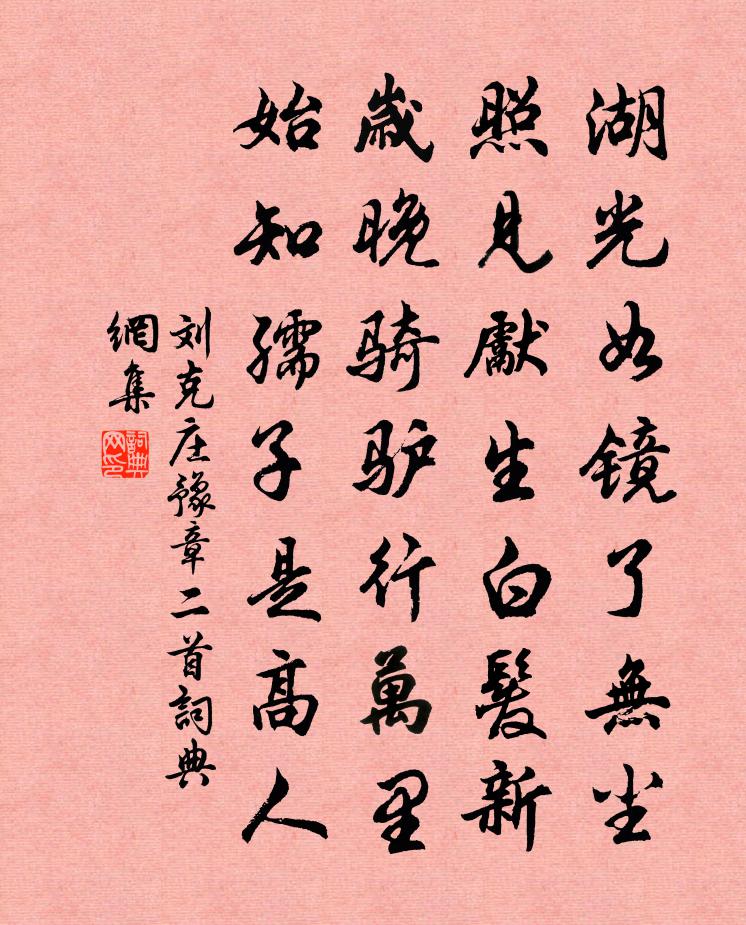 湖光如镜了無尘
照见獻生白髮新
歲晚骑驴行萬里
始知孺子是高人
刘克庄豫章二首詞典
網集
詞典网印